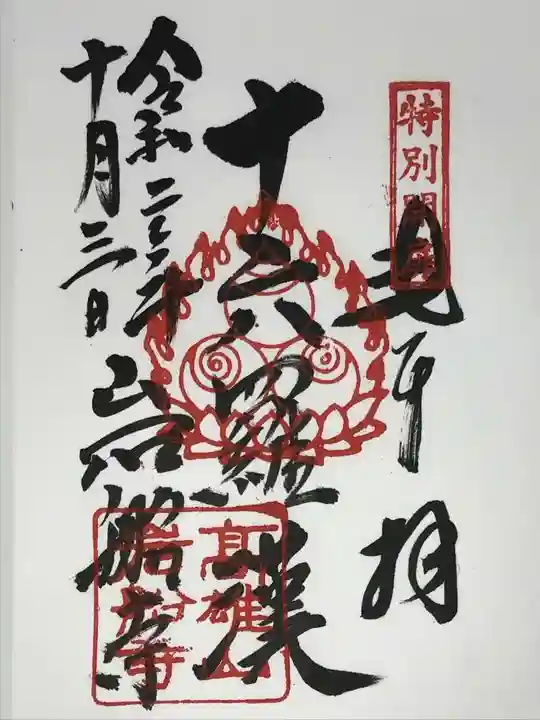 特別開扉
奉拝
十六羅漢
岩船寺
令和二年
十月三日
高雄山
岩船寺